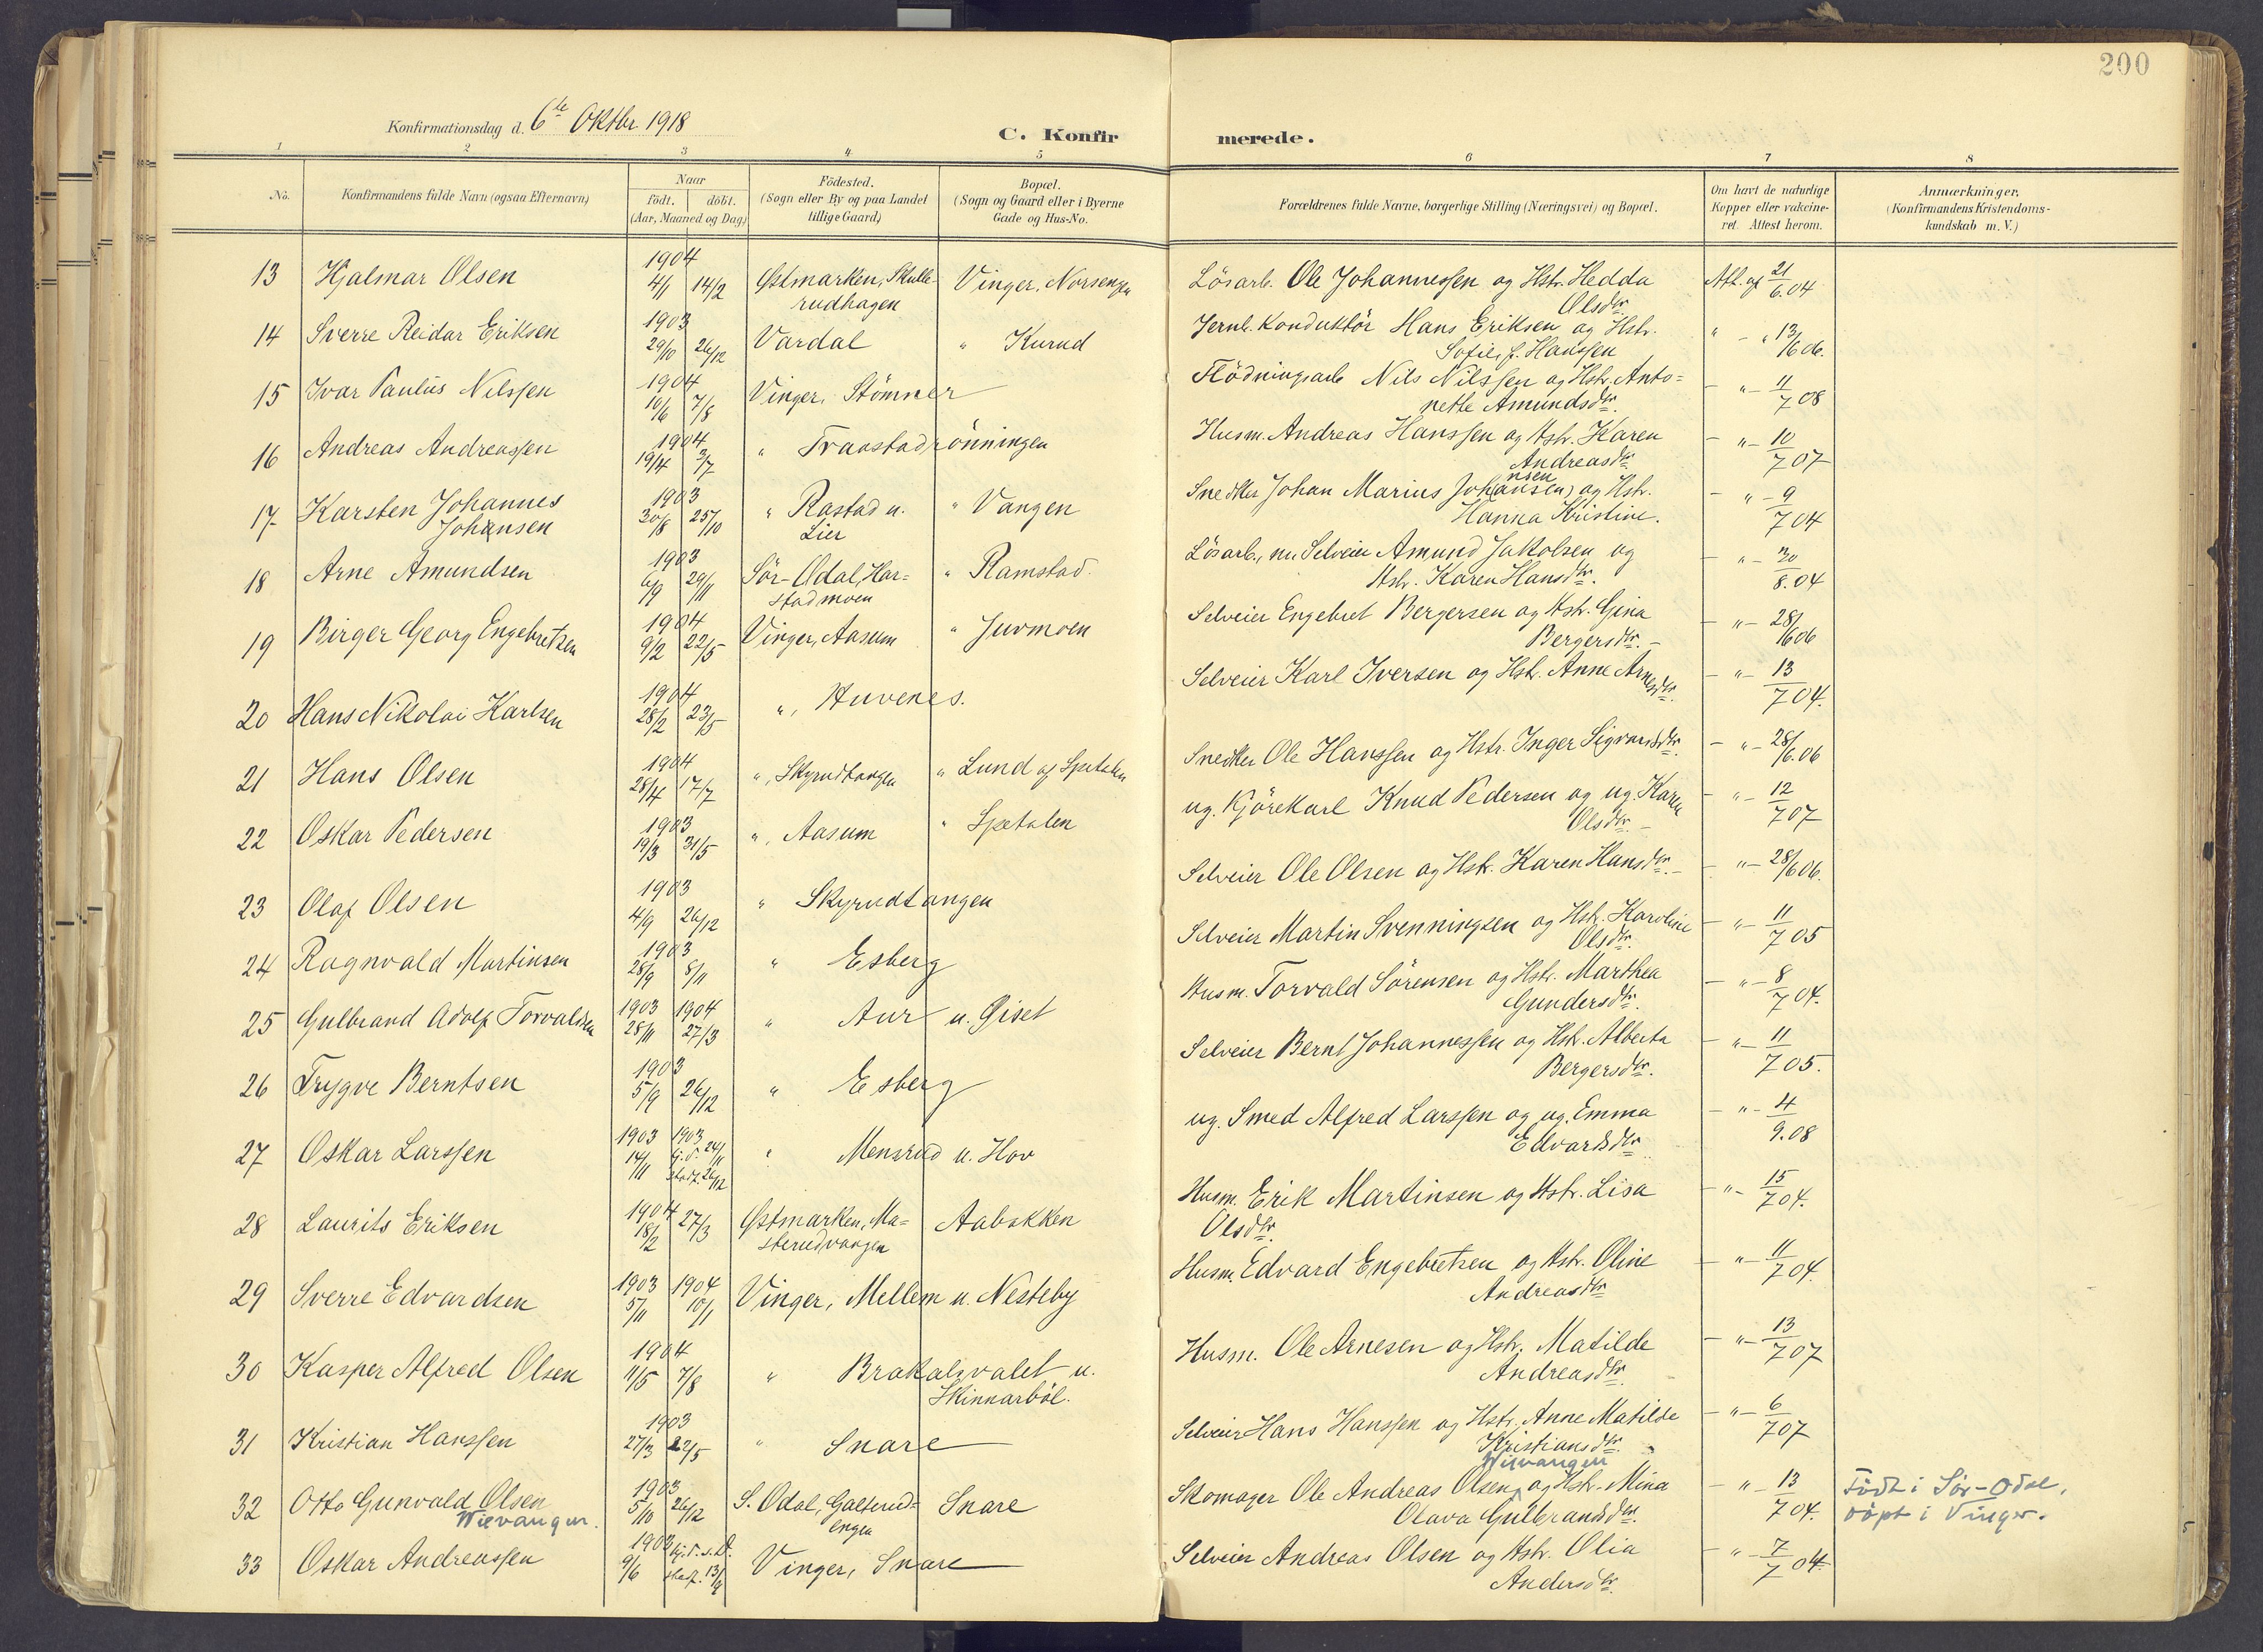 200
Konfirmationsdag d. 6te Oktbr. 1918
C. Konfirmerede.
1 2 3 4 5 6 7 8
No.
Konfirmandens fulde Navn (ogsaa Efternavn)
Naar
født. døbt.
(Aar, Maaned og Dag)
Fødested.
(Sogn eller By og paa Landet
tillige Gaard)
Bopæl.
(Sogn og Gaard eller i Byerne
Gade og Hus-No.
Forældrenes fulde Navne, borgerlige Stilling (Næringsvei) og Bopæl.
Om havt de naturlige
Kopper eller vakcine-
ret. Attest herom.
Anmærkninger.
(Konfirmandens Kristendoms-
kundskab m. V.)
13 Hjalmar Olsen 1904 4/1 14/2 Østmarken, Skulle- Vinger, Norsenga Lösarb. Ole Johannessen og Hstr. Hedda Att. af 21/6.04
rudhagen Olsdtr.
14 Sverre Reidar Eriksen 1903 29/10 26/12 Vardal " Kurud Jernb. Konduktör Hans Eriksen og Hstr. " - " 13/6 06.
Sofie, f. Hanssen
15 Ivar Paulus Nilssen 1904 10/6 7/8 Vinger, Stømner Flödningsarb Nils Nilssen og Hstr. Anto= - " - 11/7 08
nette Amundsdtr.
16 Andreas Andreassen 1904 19/4 3/7 " Traastadrönningen Husm. Andreas Hanssen og Hstr. Karen - " - 10/7 07
Andreasdtr.
17 Karsten Johannes 1903 30/8 25/10 " Rastad u. " Vangen Snedker Johan Marius Johansen) og Hstr. - " - 9/7 04
nsen
Johansen Lier Hanna Kristine.
18 Arne Amundsen 1903 6/9 29/11 Sör-Odal, Har= " Ramstad. Lösarb., nu Selveier Amund Jakobsen og - " - 30/8.04
stadmoen Hstr. Karen Hansdtr.
19 Birger Georg Engebretsen 1904 9/2 22/5 Vinger, Aasum " Juvmoen Selveier Engebret Bergersen og Hstr. Gina - " - 28/6 06
Bergersdtr. -
20 Hans Nikolai Karlsen 1904 28/2 23/5 ", Huvenes. Selveier Karl Iversen og Hstr. Anne Arnesdtr. - " - 13/7 04.
21 Hans Olsen 1904 28/4 17/7 ", Skyrudtangen " Lund af Spetalen Snedker Ole Hanssen og Hstr. Inger Sigvardsdtr. - " - 28/6.06
22 Oskar Pedersen 1903 19/3 31/5 ", Aasum " Spetalen ug. Kjörekarl Knud Pedersen og ug. Karen - " - 12/7 07
Olsdtr. -
23 Olaf Olsen 1903 4/9 26/12 " Skyrudtangen Selveier Ole Olsen og Hstr. Karen Hansdtr. - - " - 28/6 06.
24 Ragnvald Martinsen 1903 28/9 8/11 " Esberg Selveier Martin Svenningsen og Hstr. Karoline - " - 11/7 05
Olsdtr.
25 Gulbrand Adolf Torvaldsen 1903 28/11 1904 27/3 " Aur u. Giset Husm. Torvald Sörensen og Hstr. Marthea - " - 8/7 04.
Gundersdtr.
26 Trygve Berntsen 1903 5/9 26/12 " Esberg Selveier Bernt Johannessen og Hstr. Alberta - " - 11/7 05.
Bergersdtr.
27 Oskar Larssen 1903 14/11 1903 hj. d. 24/11 " Mensrud u. Hov ug. Smed Alfred Larssen og ug. Emma - " - 4/9.08
stadf. 26/12 Edvardsdtr.
28 Laurits Eriksen 1904 18/2 27/3 Østmarken, Ma= Aabakken Husm. Erik Martinsen og Hstr. Lisa - " - 15/7 04.
sterudvangen Olsdtr.
29 Sverre Edvardsen 1903 5/11 1904 10/1 Vinger, Mellem u. Nesteby Husm. Edvard Engebretsen og Hstr. Oline - " - 11/7 04.
Andreasdtr.
30 Kasper Alfred Olsen 1904 11/5 7/8 " Brakalsvalet u. Husm. Ole Arnesen og Hstr. Matilde - " - 13/7 07
Skinnarböl. Andreasdtr.
31 Kristian Hanssen 1903 27/3 22/5 " Snare Selveier Hans Hanssen og Hstr. Anne Matilde - " - 6/7 07
Kristiansdtr.
Wievangen
32 Otto Gunvald Olsen 1903 5/10 26/12 S. Odal, Galterud= Snare Skomager Ole Andreas Olsen, og Hstr. Mina - " - 13/7 04. Födt i Sör-Odal,
Wievangen. engen Olava Gulbrandsdtr. döpt i Vinger.
33 Oskar Andreassen 1903 9/6 hj. d. stadf. 13/9 Vinger, Snare Selveier Andreas Olsen og Hstr. Olia - " - 7/7 04.
Andersdtr.